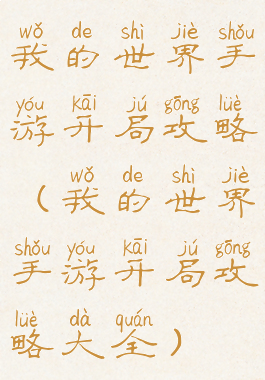 wǒ de shì jiè shǒu
我的世界手
yóu kāi jú gōng lüè
游开局攻略
wǒ de shì jiè
（我的世界
shǒu yóu kāi jú gōng
手游开局攻
lüè dà quán
略大全）